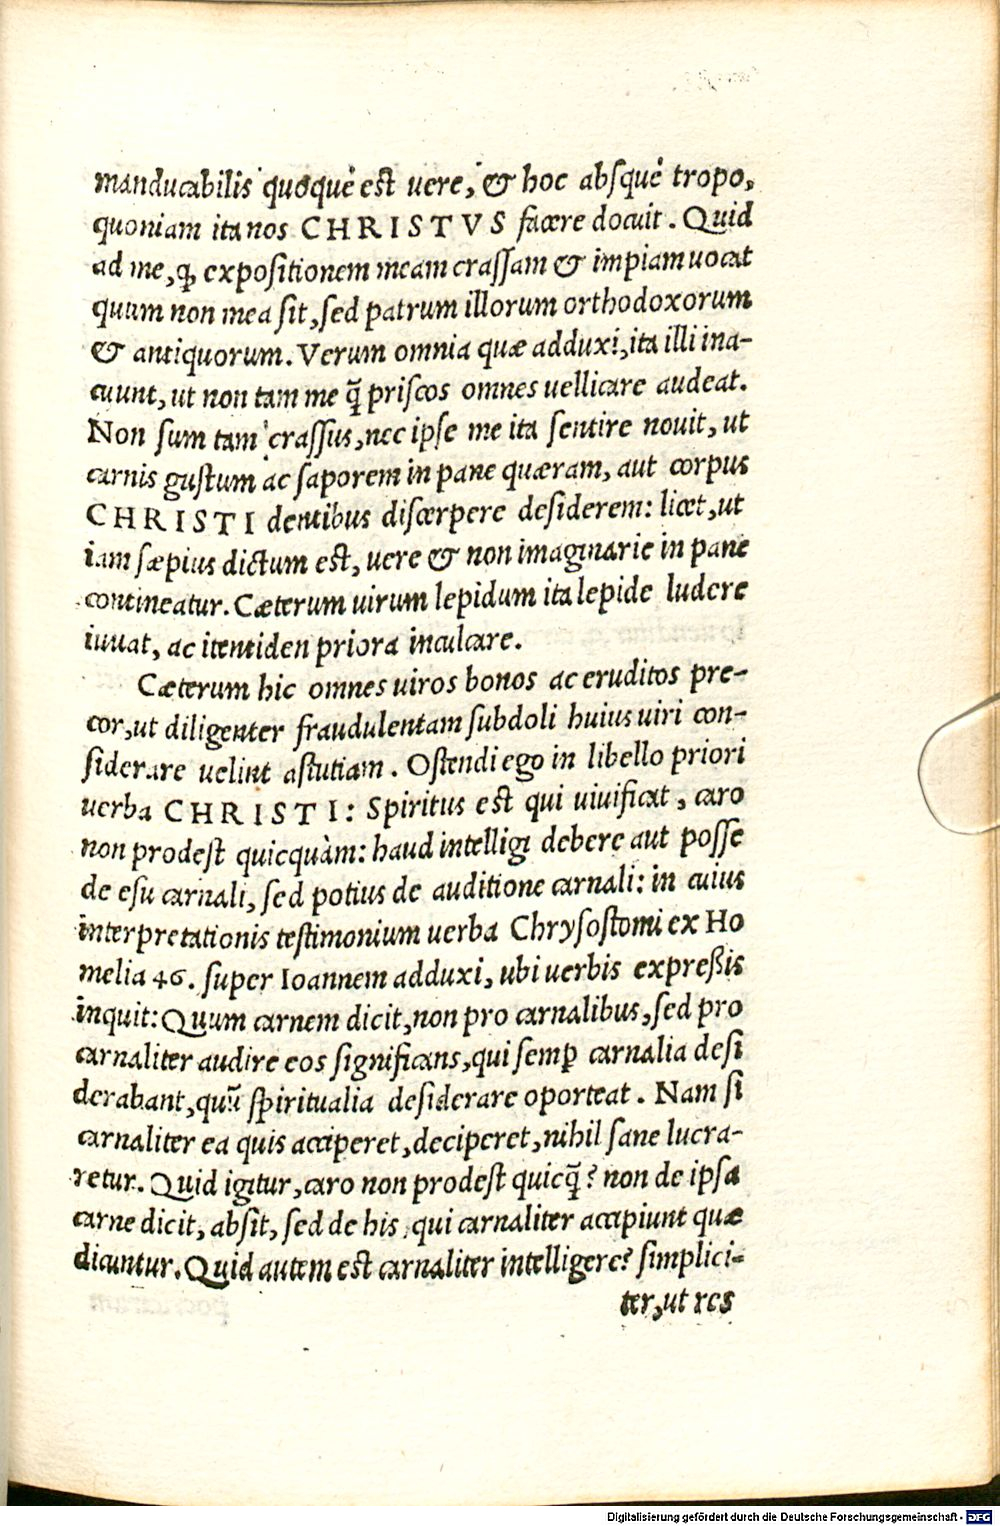 manducabilis quoque est uere, & hoc absque tropo,
quoniam ita nos CHRISTVS facere docuit. Quid
ad me, ꝙ expositionem meam crassam & impiam uocat
quum non mea sit, sed patrum illorum orthodoxorum
& antiquorum. Verum omnia quæ adduxi, ita illi ina-
cuunt, ut non tam me q̃ priscos omnes uellicare audeat.
Non sum tam crassus, nec ipse me ita sentire nouit, ut
carnis gustum ac saporem in pane quæram, aut corpus
CHRISTI dentibus discerpere desiderem: licet, ut
iam sæpius dictum est, uere & non imaginarie in pane
contineatur. Cæterum uirum lepidum ita lepide ludere
iuuat, ac itentiden priora inculcare.
Cæterum hic omnes uiros bonos ac eruditos pre-
cor, ut diligenter fraudulentam subdoli huius uiri con-
siderare uelint astutiam. Ostendi ego in libello priori
uerba CHRISTI: Spiritus est qui uiuificat, caro
non prodest quicquàm: haud intelligi debere aut posse
de esu carnali, sed potius de auditione carnali: in cuius
interpretationis testimonium uerba Chrysostomi ex Ho
melia 46. super Ioannem adduxi, ubi uerbis expreßis
inquit: Quum carnem dicit, non pro carnalibus, sed pro
carnaliter audire eos significans, qui semꝑ carnalia desi
derabant, quũ spiritualia desiderare oporteat. Nam si
carnaliter ea quis acciperet, deciperet, nihil sane lucra-
retur. Quid igitur, caro non prodest quicq̃? non de ipsa
carne dicit, absit, sed de his, qui carnaliter accipiunt quæ
dicuntur. Quid autem est carnaliter intelligere? simplici-
ter, ut res
Digitalisierung gefördert durch die Deutsche Forschungsgemeinschaft - DFG